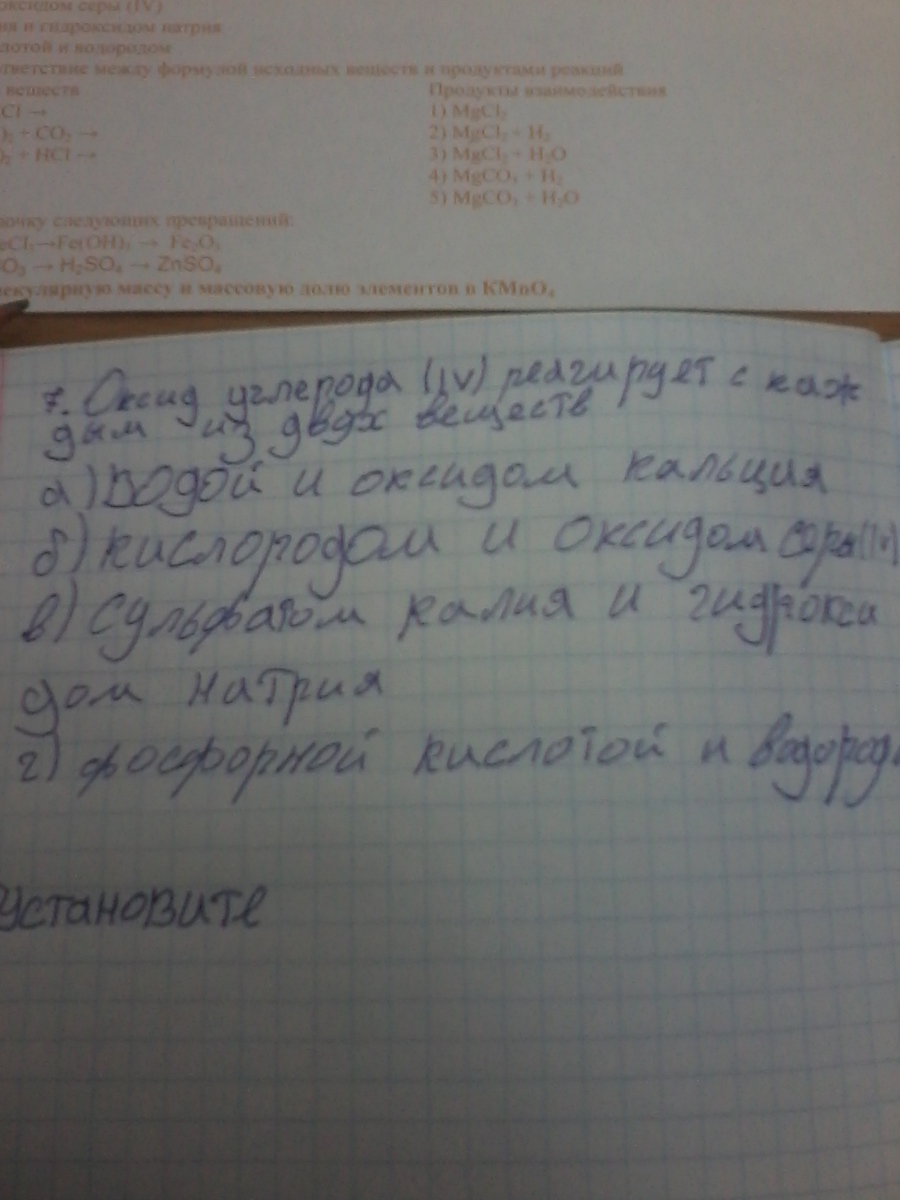 оксидом серы (IV)
ия и гидроксидом натрия
лотой и водородом
ответствие между формулой исходных веществ и продуктами реакций
веществ Продукты взаимодействия
Cl → 1) MgCl₂
)₂ + CO₂ → 2) MgCl₂ + H₂
)₂ + HCl → 3) MgCl₂ + H₂O
4) MgCO₃ + H₂
5) MgCO₃ + H₂O
почку следующих превращений:
eCl₃→Fe(OH)₃ → Fe₂O₃
O₃ → H₂SO₄ → ZnSO₄
лекулярную массу и массовую долю элементов в KMnO₄
7. Оксид углерода (IV) реагирует с каж
дым из двух веществ
а) водой и оксидом кальция
б) кислородом и оксидом серы (IV)
в) Сульфатом калия и гидрокси
дом натрия
г) фосфорной кислотой и водород
Установите